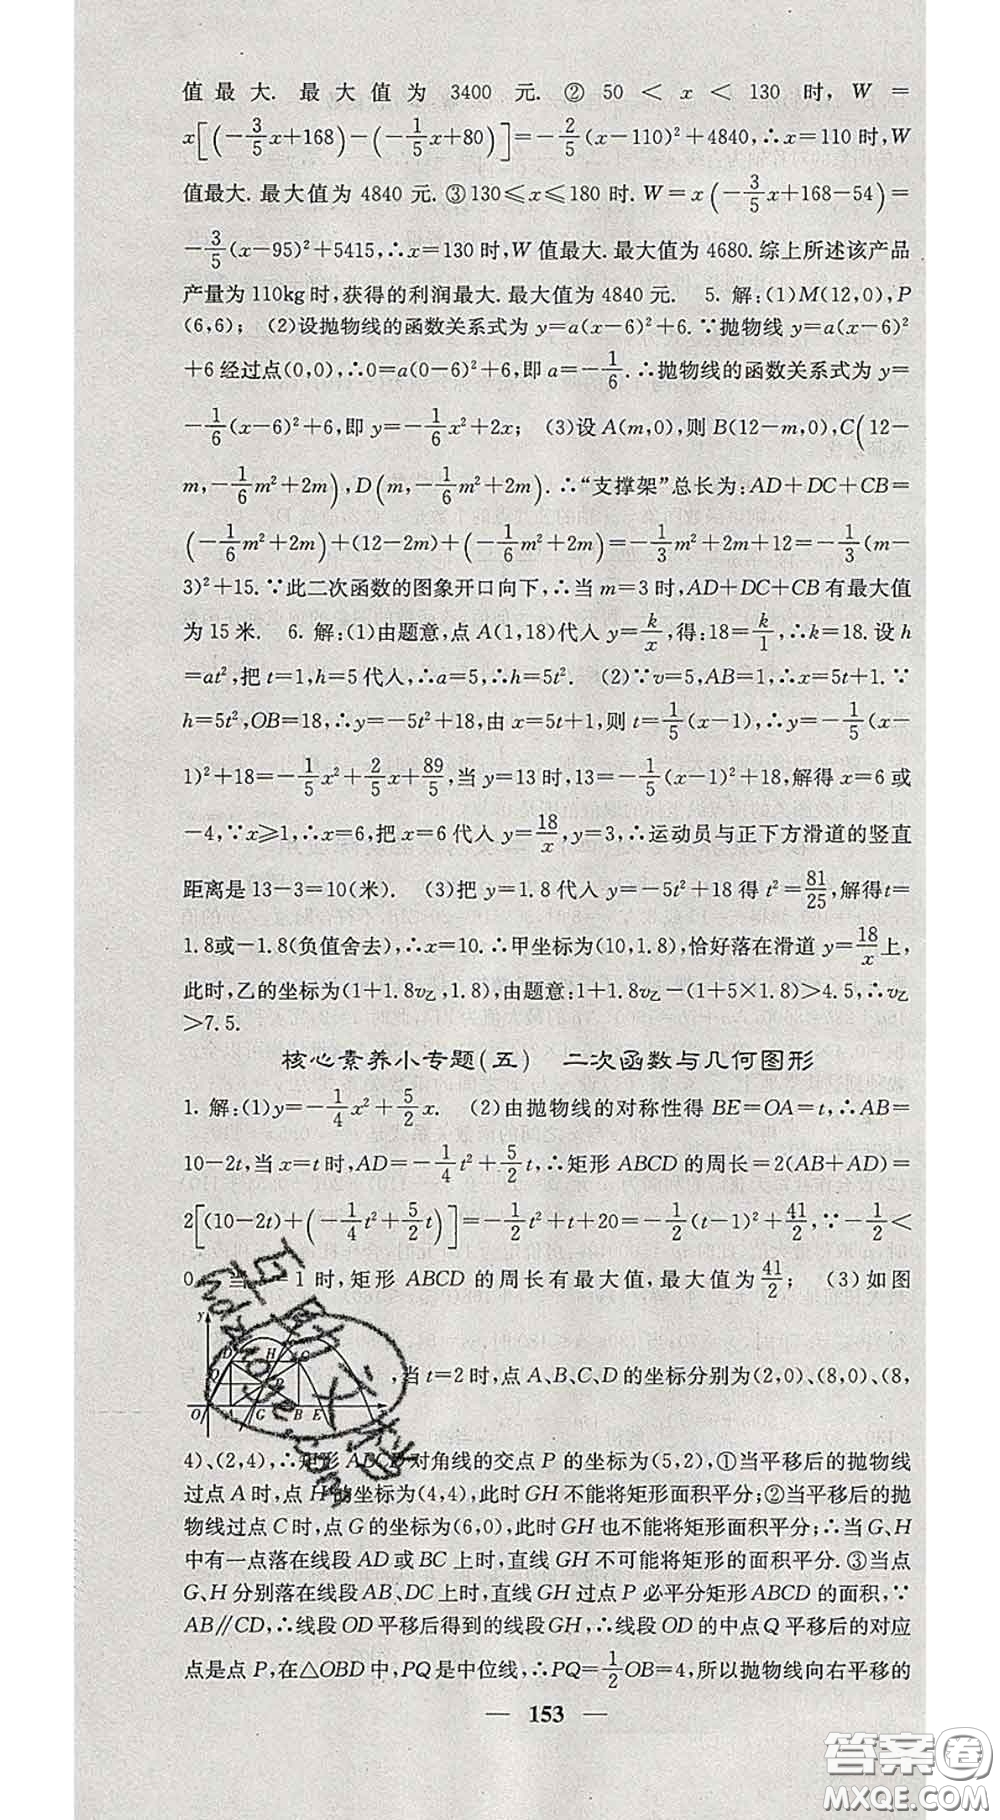 值最大. 最大值为 3400 元. ② 50 < x < 130 时, W =
x[(-3/5x+168)-(-1/5x+80)]=-2/5(x-110)²+4840,∴x=110时,W
值最大. 最大值为 4840 元. ③130≤x≤180 时. W=x(-3/5x+168-54)=
-3/5(x-95)²+5415,∴x=130时,W 值最大. 最大值为 4680. 综上所述该产品
产量为110kg时,获得的利润最大. 最大值为4840元. 5. 解:(1)M(12,0),P
(6,6); (2)设抛物线的函数关系式为 y=a(x-6)²+6.∵抛物线 y=a(x-6)²
+6经过点(0,0),∴0=a(0-6)²+6,即 a=-1/6.∴抛物线的函数关系式为 y=
-1/6(x-6)²+6,即 y=-1/6x²+2x; (3)设 A(m,0),则 B(12-m,0),C(12-
m,-1/6m²+2m),D(m,-1/6m²+2m).∴“支撑架”总长为:AD+DC+CB=
(-1/6m²+2m)+(12-2m)+(-1/6m²+2m)=-1/3m²+2m+12=-1/3(m-
3)²+15.∵此二次函数的图象开口向下,∴当 m=3时,AD+DC+CB有最大值
为15米. 6. 解:(1)由题意,点 A(1,18)代入 y=k/x,得:18=k/1,∴k=18. 设 h
=at²,把 t=1,h=5代入,∴a=5,∴h=5t². (2)∵v=5,AB=1,∴x=5t+1.∵
h=5t²,OB=18,∴y=-5t²+18,由 x=5t+1,则 t=1/5(x-1),∴y=-1/5(x-
1)²+18=-1/5x²+2/5x+89/5,当 y=13时,13=-1/5(x-1)²+18,解得 x=6或
-4,∵x≥1,∴x=6,把 x=6代入 y=18/x,y=3,∴运动员与正下方滑道的竖直
距离是13-3=10(米). (3)把 y=1.8代入 y=-5t²+18得 t²=81/25,解得t=
1.8或-1.8(负值舍去),∴x=10.∴甲坐标为(10,1.8),恰好落在滑道 y=18/x上,
此时,乙的坐标为(1+1.8v乙,1.8),由题意:1+1.8v乙-(1+5×1.8)>4.5,∴v乙
>7.5.
核心素养小专题(五) 二次函数与几何图形
1. 解:(1)y=-1/4x²+5/2x. (2)由抛物线的对称性得 BE=OA=t,∴AB=
10-2t,当 x=t时,AD=-1/4t²+5/2t,∴矩形 ABCD 的周长=2(AB+AD)=
2[(10-2t)+(-1/4t²+5/2t)]=-1/2t²+t+20=-1/2(t-1)²+41/2,∵-1/2<
0 当 1时,矩形 ABCD 的周长有最大值,最大值为41/2; (3)如图
y D H C Q P O A G B E x
,当 t=2时,点 A、B、C、D 的坐标分别为(2,0)、(8,0)、(8,
4)、(2,4),∴矩形 ABCD对角线的交点 P 的坐标为(5,2),①当平移后的抛物线
过点 A 时,点 H 的坐标为(4,4),此时GH不能将矩形面积平分;②当平移后的抛
物线过点 C 时,点 G 的坐标为(6,0),此时 GH 也不能将矩形面积平分;∴当 G、H
中有一点落在线段 AD 或 BC 上时,直线 GH 不可能将矩形的面积平分. ③当点
G、H 分别落在线段 AB、DC 上时,直线 GH 过点 P 必平分矩形 ABCD 的面积,∵
AB∥CD,∴线段 OD 平移后得到的线段GH,∴线段 OD 的中点Q平移后的对应
点是点 P,在△OBD中,PQ是中位线,∴PQ=1/2OB=4,所以抛物线向右平移的
— 153 —
答案圈
MXQE.COM